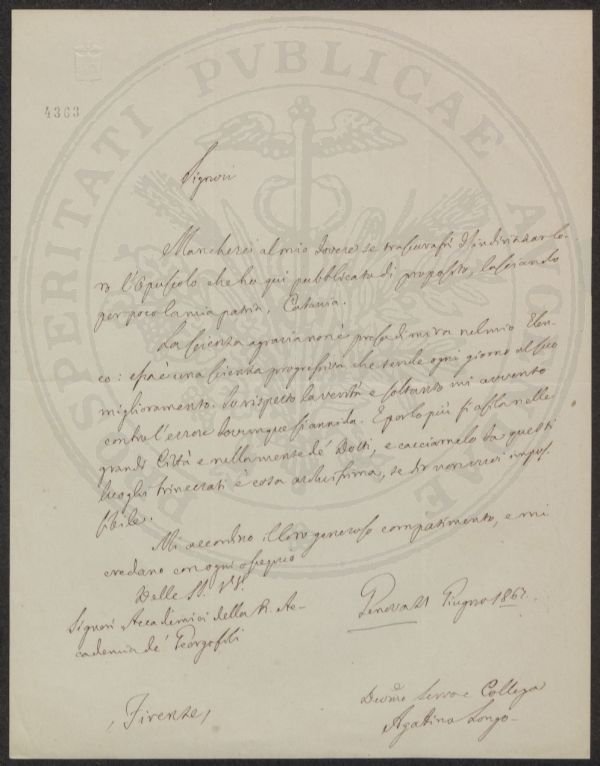 4363
PROSPERITATI PVBLICAE AVGENDAE
Signori
Mancherei al mio dovere se trascurassi d'indirizzar lo-
ro l'Opuscolo che ho qui pubblicato di proposito, lasciando
per poco la mia patria, Catania.
La scienza agraria non è presa di mira nel mio Elen-
co: essa è una scienza progressiva che tende ogni giorno al suo
miglioramento. Io rispetto la verità e soltanto mi avvento
contro l'errore dovunque si annida. E per lo più si asila nelle
grandi Città e nella mente de' Dotti, e cacciarnelo da questi
luoghi trincerati è cosa arduissima, se dir non vuoi impos-
sibile.
Mi accordino il loro generoso compatimento, e mi
credano con ogni ossequio
Delle SS. VV.
Signori Accademici della R. Ac-
cademia de' Georgofili
Genova 21 Giugno 186
Firenze
Devmo Servo e Collega
Agatino Longo